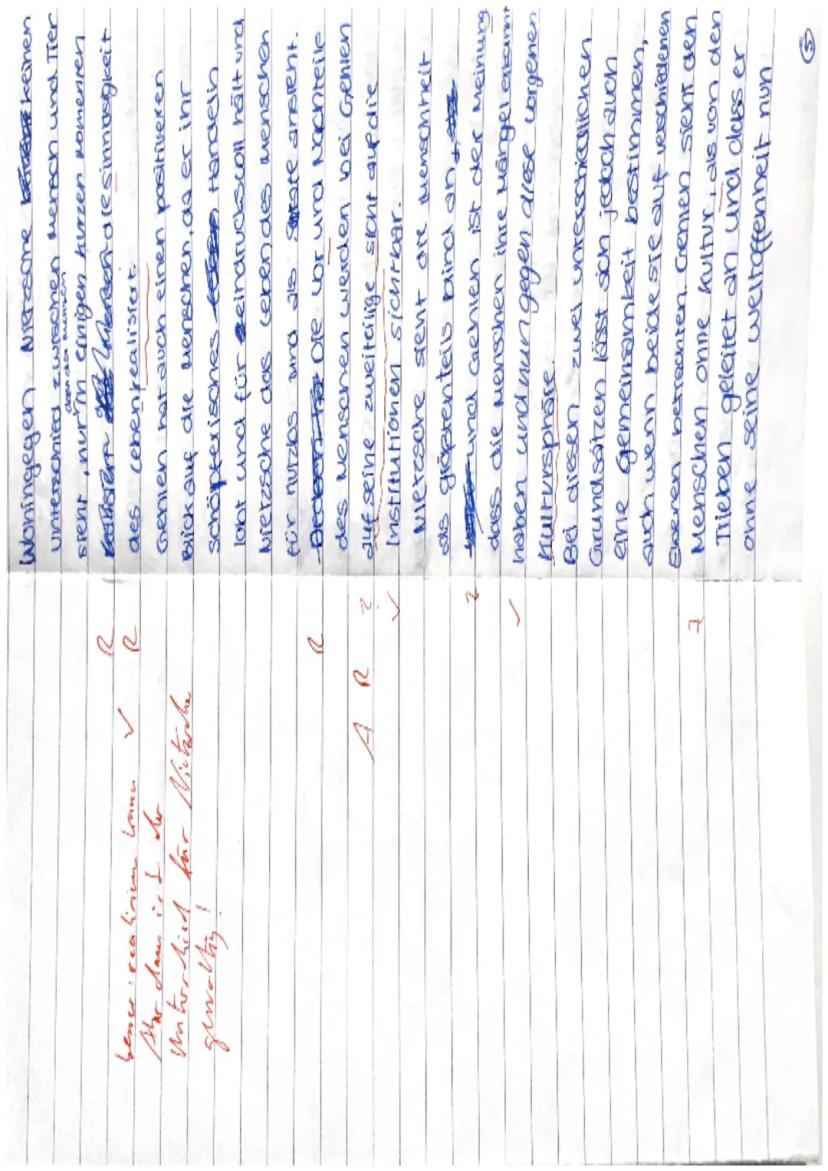 Wohingegen Nietzsche keinen
unterschied zwischen Mensch und Tier
sieht, nur in einigen kurzen momenten
die sinnhaftigkeit R
des Lebens realisiert. R
besser: realisieren kann ✓
Aber dann ist der
Unterschied für Nietzsche
gewaltig!
Gehlen hat auch einen positiveren
Blick auf die Menschen, da er ihr
schöpferisches Handeln
lobt und für eindrucksvoll hält und
Nietzsche das Leben des Menschen
für nutzlos und als Strafe ansieht.
Die Vor und Nachteile R
des Menschen werden bei Gehlen
auf seine zweiteilige sicht auf die A R ?
Institutionen sichtbar. ✓
Nietzsche sieht die Menschheit
als größtenteils blind an,
und Gehlen ist der Meinung z
dass die Menschen ihre Mängel erkannt
haben und nun gegen diese vorgehen ✓
Kulturspräre.
Bei diesen zwei unterschiedlichen
Grundsätzen lässt sich jedoch auch
eine Gemeinsamkeit bestimmen,
auch wenn beide sie auf verschiedenen
Ebenen betrachten. Gehlen sieht den
Menschen ohne Kultur, als von den z
Tieben geleitet an und dass er
ohne seine Weltoffenheit nun
5